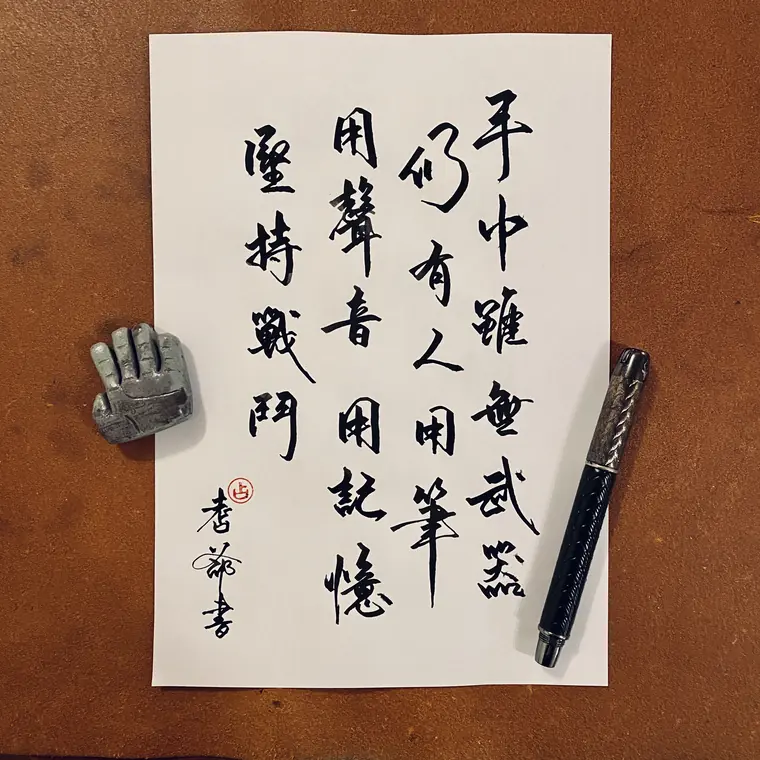 手中雖無武器
仍有人用筆
用聲音 用記憶
堅持戰鬥
占
書